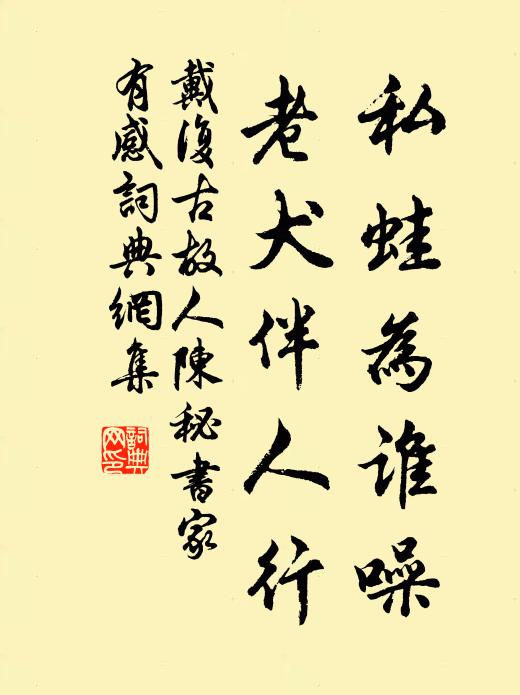 私蛙為誰噪
老犬伴人行
戴復古故人陳秘書家
有感詞典網集
詞典
网印